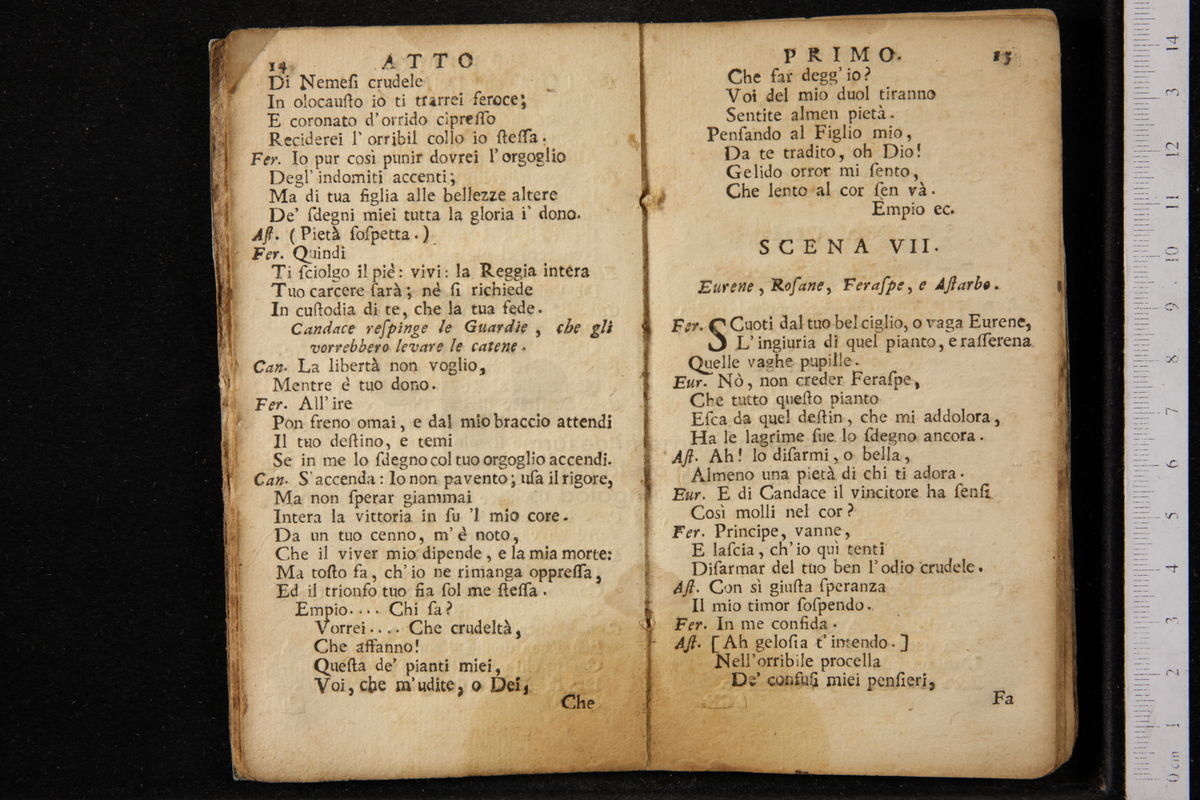 14 ATTO
Di Nemeſi crudele
In olocauſto io ti trarrei feroce;
E coronato d'orrido cipreſſo
Reciderei l'orribil collo io ſteſſa.
Fer. Io pur così punir dovrei l'orgoglio
Degl'indomiti accenti;
Ma di tua figlia alle bellezze altere
De' ſdegni miei tutta la gloria i' dono.
Aſt. (Pietà ſoſpetta.)
Fer. Quindi
Ti ſciolgo il piè: vivi: la Reggia intera
Tuo carcere ſarà; nè ſi richiede
In cuſtodia di te, che la tua fede.
Candace reſpinge le Guardie, che gli
vorrebbero levare le catene.
Can. La libertà non voglio,
Mentre è tuo dono.
Fer. All'ire
Pon freno omai, e dal mio braccio attendi
Il tuo deſtino, e temi
Se in me lo ſdegno col tuo orgoglio accendi.
Can. S'accenda: Io non pavento; uſa il rigore,
Ma non ſperar giammai
Intera la vittoria in ſu 'l mio core.
Da un tuo cenno, m'è noto,
Che il viver mio dipende, e la mia morte:
Ma toſto fa, ch'io ne rimanga oppreſſa,
Ed il trionfo tuo fia ſol me ſteſſa.
Empio.... Chi ſa?
Vorrei.... Che crudeltà,
Che affanno!
Queſta de' pianti miei,
Voi, che m'udite, o Dei,
Che
PRIMO. 15
Che far degg'io?
Voi del mio duol tiranno
Sentite almen pietà.
Penſando al Figlio mio,
Da te tradito, oh Dio!
Gelido orror mi ſento,
Che lento al cor ſen và.
Empio ec.
SCENA VII.
Eurene, Roſane, Feraſpe, e Aſtarbo.
Fer. SCuoti dal tuo bel ciglio, o vaga Eurene,
L'ingiuria di quel pianto, e raſſerena
Quelle vaghe pupille.
Eur. Nò, non creder Feraſpe,
Che tutto queſto pianto
Eſca da quel deſtin, che mi addolora,
Ha le lagrime ſue lo ſdegno ancora.
Aſt. Ah! lo diſarmi, o bella,
Almeno una pietà di chi ti adora.
Eur. E di Candace il vincitore ha ſenſi
Così molli nel cor?
Fer. Principe, vanne,
E laſcia, ch'io quì tenti
Diſarmar del tuo ben l'odio crudele.
Aſt. Con sì giuſta ſperanza
Il mio timor ſoſpendo.
Fer. In me confida.
Aſt. [Ah geloſia t'intendo.]
Nell'orribile procella
De' confuſi miei penſieri,
Fa
0 cm 1 2 3 4 5 6 7 8 9 10 11 12 3 14